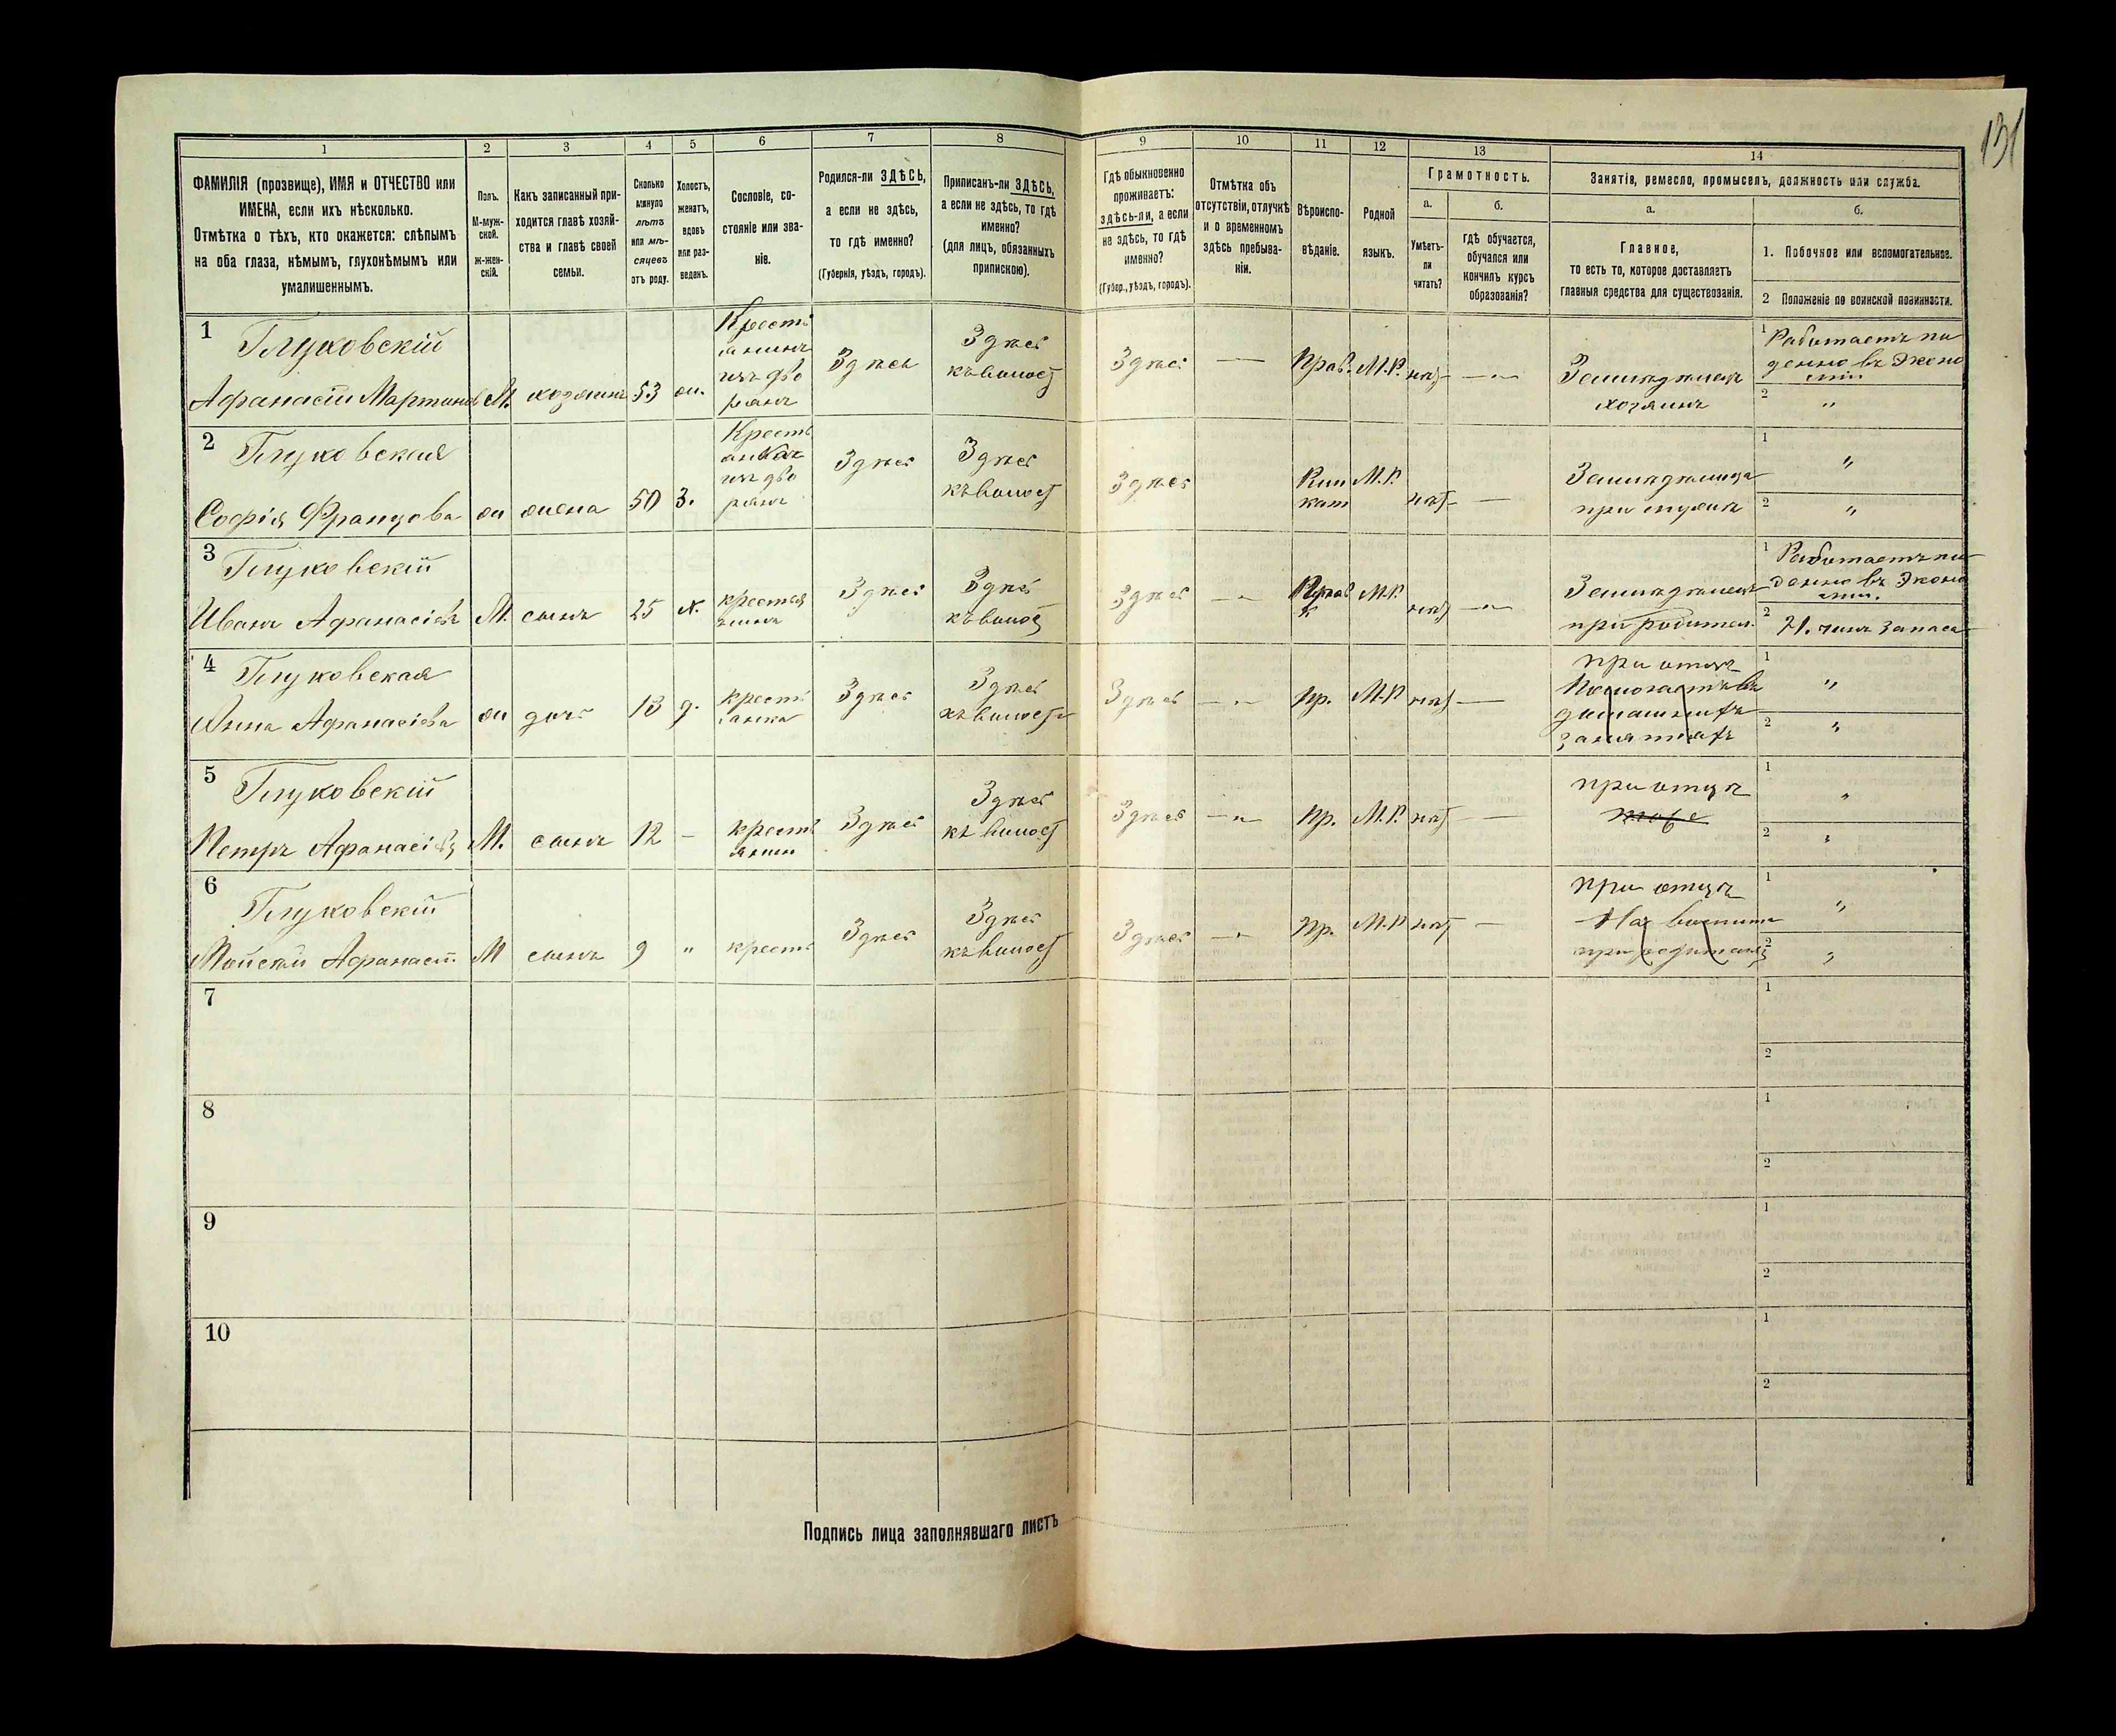 131
1 2 3 4 5 6 7 8 9 10 11 12 13 14
ФАМИЛІЯ (прозвище), ИМЯ и ОТЧЕСТВО или
ИМЕНА, если ихъ нѣсколько.
Отмѣтка о тѣхъ, кто окажется: слѣпымъ
на оба глаза, нѣмымъ, глухонѣмымъ или
умалишеннымъ.
Полъ.
М-муж-
ской.
ж-жен-
скій.
Какъ записанный при-
ходится главѣ хозяй-
ства и главѣ своей
семьи.
Сколько
минуло
лѣтъ
или мѣ-
сяцевъ
отъ роду.
Холостъ,
женатъ,
вдовъ
или раз-
веденъ.
Сословіе, со-
стояніе или зва-
ніе.
Родился-ли ЗДѢСЬ,
а если не здѣсь,
то гдѣ именно?
(Губернія, уѣздъ, городъ).
Приписанъ-ли ЗДѢСЬ,
а если не здѣсь, то гдѣ
именно?
(для лицъ, обязанныхъ
припискою).
Гдѣ обыкновенно
проживаетъ:
здѣсь-ли, а если
не здѣсь, то гдѣ
именно?
(Губер., уѣздъ, городъ).
Отмѣтка объ
отсутствіи, отлучкѣ
и о временномъ
здѣсь пребыва-
ніи.
Вѣроиспо-
вѣданіе.
Родной
языкъ.
Грамотность.
а.
Умѣетъ-
ли
читать?
б.
Гдѣ обучается,
обучался или
кончилъ курсъ
образованія?
Занятія, ремесло, промыселъ, должность или служба.
а.
Главное,
то есть то, которое доставляетъ
главныя средства для существованія.
б.
1. Побочное или вспомогательное.
2 Положеніе по воинской повинности.
1
Глуховскій
Афанасій Мартиновъ
М.
хозяинъ
53
ж.
Кресть
янинъ
изъ дво
рянъ
Здѣсь
Здѣсь
къ волост
Здѣсь
Прав.
М.Р.
нѣт
Земледѣлецъ
хозяинъ
1 Работаетъ по
денно въ Эконо
міи
2 "
2
Глуховская
Софія Францова
ж
жена
50
З.
Кресть
анка
изъ дво
рянъ
Здѣсь
Здѣсь
къ волост
Здѣсь
Рим
кат
М.Р.
нѣт
Земледѣлица
при мужѣ
1 "
2 "
3
Глуховскій
Иванъ Афанасіевъ
М.
сынъ
25
х.
крестья
нинъ
Здѣсь
Здѣсь
къ волост
Здѣсь
Прав
М.Р.
нѣт
Земледѣлецъ
при родител.
1 Работаетъ по
денно въ Эконо
міи.
2 21. чинъ запаса
4
Глуховская
Анна Афанасіева
ж
дочь
13
д.
кресть
янка
Здѣсь
Здѣсь
къ волост
Здѣсь
Пр.
М.Р
нѣт
при отцѣ
Помогаетъ въ
домашнихъ
занятіяхъ
1 "
2 "
5
Глуховскій
Петръ Афанасіевъ
М.
сынъ
12
кресть
янин
Здѣсь
Здѣсь
къ волост
Здѣсь
Пр.
М.Р.
нѣт
при отцѣ
тоже
1 "
2 "
6
Глуховскій
Мойсей Афанасіев
М
сынъ
9
"
кресть
Здѣсь
Здѣсь
къ волост
Здѣсь
Пр.
М.Р
нѣт
при отцѣ
1 "
2 "
7
1
2
8
1
2
9
1
2
10
1
2
Подпись лица заполнявшаго листъ